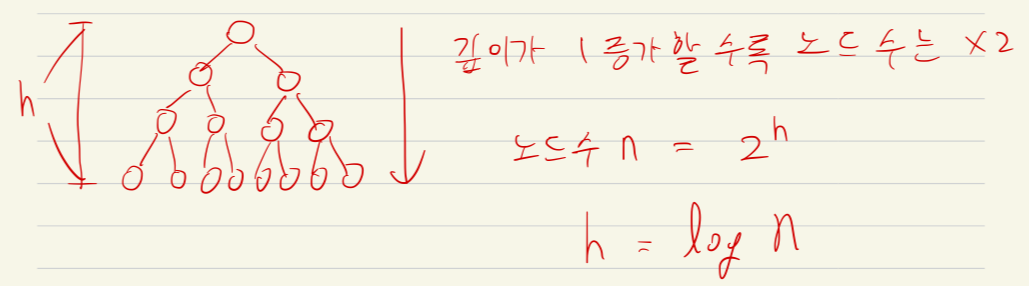 h
깊이가 1 증가할 수록 노드 수는 ×2
노드수 n = 2^h
h = log n